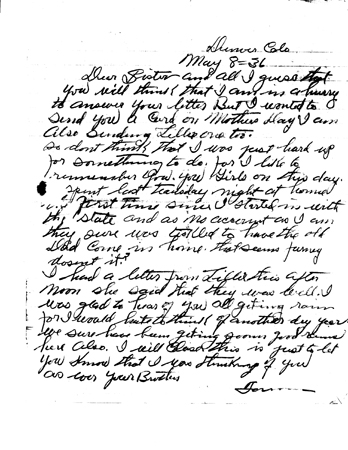 Denver Colo
May 8=36
Dear Sister and All I guess that
you will think that I am in a hurry
to answer your letter But I wanted to
Send you a Card on Mothers day I am
Also Sending one to.
so dont think that I was just hard up
for something to do. for I like to
remember you Girls on this day.
I spent last tuesday night at home
first time since I started in with
the State and as no account as I am
they sure was to have the old
Dad Come in home. that seems funny
doesnt it?
I had a letter from this after
noon She said that they was well. I
was glad to hear of you All giting rain
for I would hate to think of another dry year
We sure have been giting good rains
here Also. I will Close this is just to let
you know that I was thinking of you
as ever your Brother